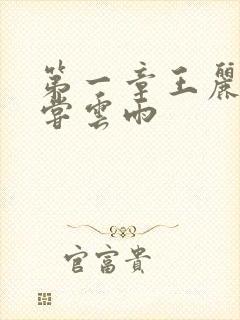 第一章王麗
嘗雲雨
官富貴